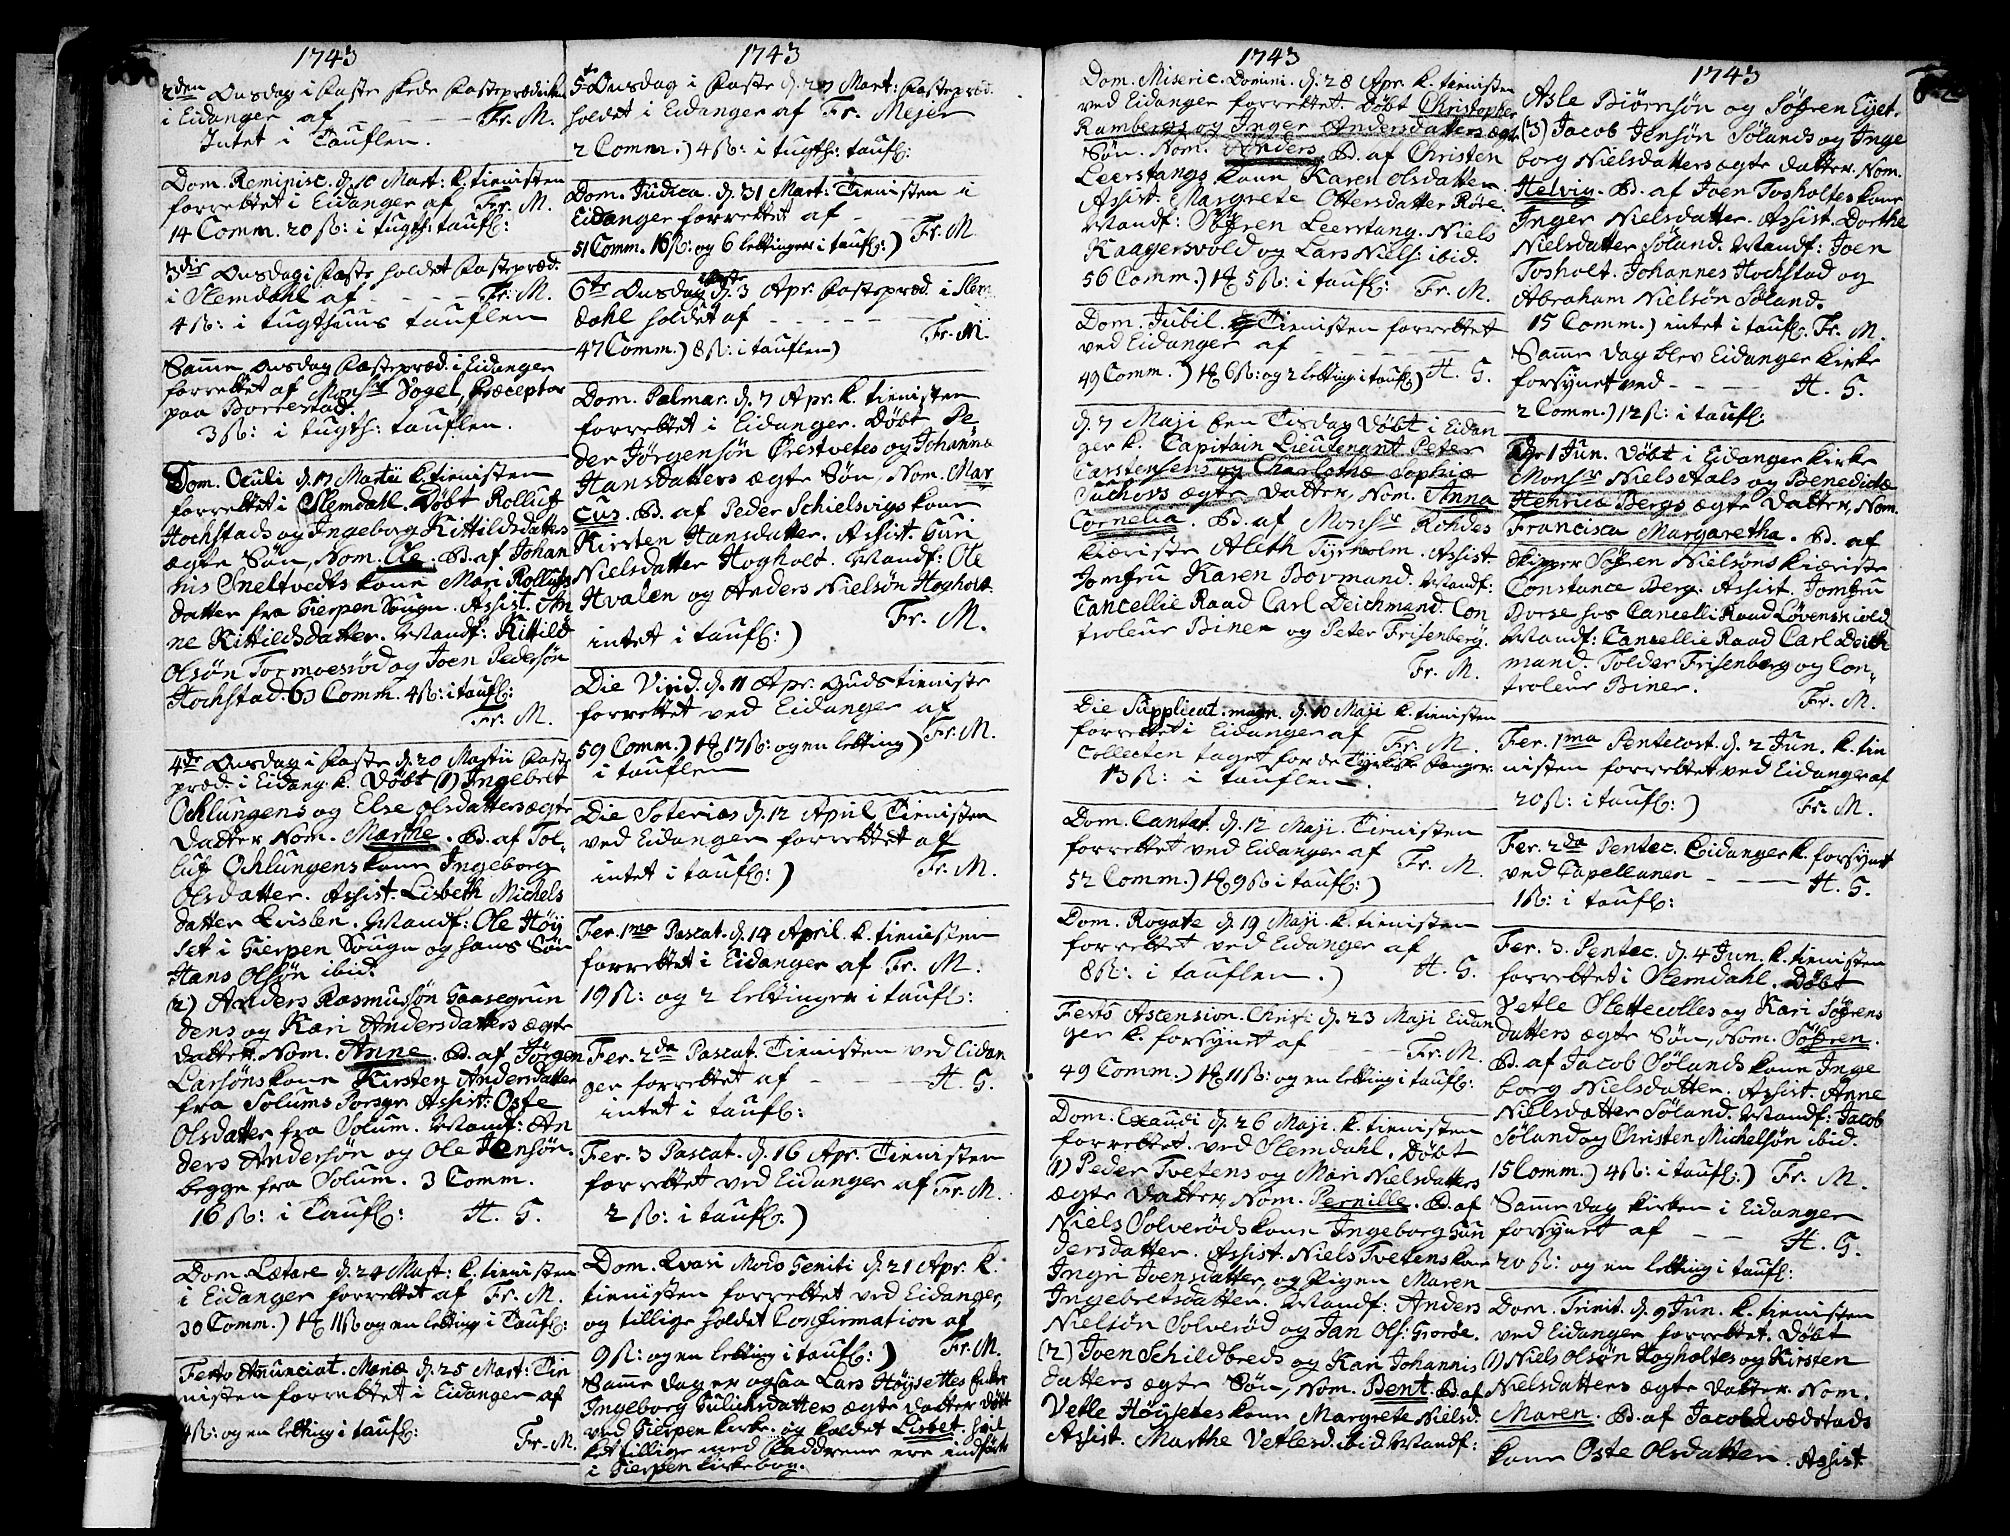 1743
2den Onsdag i Faste skede Fasteprædiken
i Eidanger af - - - Fr. M.
Intet i Tauflen.
Dom. Reminisc. d. 10 Mart: k. tienisten
forrettet i Eidanger af Fr. M.
14 Comm. 20 ß: i tugth: taufl:
3die Onsdag i Faste holdet Fastepræd.
i Slemdahl af - - - Fr. M.
4 ß: i tugthuus tauflen
Samme Onsdag Fastepræd. i Eidanger
forrettet af Monsr Vogel, Præceptor
paa Borrestad.
3 ß: i tugth: tauflen.
Dom. Oculi d. 17 Martii k. tienisten
forrettet i Slemdahl. Døbt Rolluf
Hochstads og Ingeborg Kittildsdatters
ægte Søn, Nom. Ole. B. af Johan
nis Sneltvedts kone Mari Rollufs
datter fra Gierpen Sougn. Assist. An
ne Kittildsdatter. Mandf: Kittild
Olsøn Tormoesrød og Joen Pedersøn
Hochstad. 63 Comm. 4 ß: i taufl:
Fr. M.
4de Onsdag i Faste d. 20 Martii Faste
præd. i Eidang. k. Døbt (1) Ingebret
Ochlungens og Else Olsdatters ægte
datter Nom. Marthe. B. af Tol-
luf Ochlungens kone Ingeborg
Olsdatter. Assist. Lisbeth Michels
datter Mandf: Ole Høy
set i Gierpen Sougn og hans Søn
Hans Olsøn ibid.
(2) Anders Rasmussøn Gaasegrun
dens og Kari Andersdatters ægte
datter. Nom. Anne. B. af Jørgen
Larsøns kone Kirsten Andersdatter
fra Solums Porsgr. Assist: Oste
Olsdatter fra Solum. Mandf: An
ders Andersøn og Ole Jensøn.
begge fra Solum. 3 Comm.
16 ß: i Taufl: H. G.
Dom. Lætare d. 24 Mart: k. tienisten
i Eidanger forrettet af Fr. M.
30 Comm.) 11 ß og en letting i Taufl:
Festo Annunciat. Mariæ d. 25 Mart: Tie
nisten forrettet i Eidanger af
4 ß: og en letting i taufl: Fr. M.
1743
5te Onsdag i Faste d. 27 Mart. Fastepræd.
holdet i Eidanger af Fr. Mejer
2 Comm.) 4 ß: i tugth: taufl:
Dom. Judica. d. 31 Mart: Tienisten i
Eidanger forrettet af - -
51 Comm. 16 ß: og 6 lettinger i taufl:) Fr. M.
6te Onsdag i Faste d. 3 Apr. Fastepræd. i Slem
dahl holdet af - - -
47 Comm.) 8 ß: i tauflen) Fr. M.
Dom. Palmar. d. 7 Apr. k. tienisten
forrettet i Eidanger. Døbt Pe
der Jørgensøn Ørestvetes og Johanna
Hansdatters ægte Søn, Nom. Mar
cus. B. af Peder Schielsvigs kone
Kirsten Hansdatter. Assist. Gun
Nielsdatter Hogholt. Mandf: Ole
Hvalen og Anders Nielsøn Hogholt
Fr. M.
intet i taufl:)
Die Virid. d. 11 Apr. Gudstieniste
forrettet ved Eidanger af
59 Comm.) 17 ß: og en letting) Fr. M.
i tauflen
Die Soterias d. 12 April Tienisten
ved Eidanger forrettet af
intet i taufl:) Fr. M.
Fer. 1ma Pascat. d. 14 April. k. tienisten
forrettet i Eidanger af Fr. M.
19 ß: og 2 lettinger i taufl:
Fer. 2da Pascat. Tienisten ved Eidan
ger forrettet af - - - H. G.
intet i taufl:
Fer. 3 Pascat. d. 16 Apr. Tienisten
forrettet ved Eidanger af Fr. M.
2 ß: i taufl:)
Dom. Qvasi Modo Geniti d. 21 Apr. k.
tienisten forrettet ved Eidanger,
og tillige holdet Confirmation af
9 ß: og en letting i taufl:) Fr. M.
Samme dag er ogsaa Lars Høysettes
Ingeborg Gulichsdatters ægte datter døbt
ved Gierpen kirke. og kaldet Lisbet. hvil
ket tillige med Faddrene ere indført
i Gierpen kirkebog.
1743
Dom. Miseric. Domini. d. 28 Apr. k. tienisten
ved Eidanger forrettet. Døbt Christopher
Rambergs og Inger Andersdatters ægte
Søn. Nom. Anders. B. af Christen
Leerstangs kone Karen Olsdatter.
Assist. Margrete Ottersdatter Røre.
Mandf: Søfren Leerstang. Niels
Kaagersvold og Lars Niels: ibid.
56 Comm.) 5 ß: i taufl: Fr. M.
Dom. Jubil. Tienisten forrettet
ved Eidanger af - - -
49 Comm.) 6 ß: og 2 letting i taufl:) H. G.
d. 7 Maji ben Tisdag Døbt i Eidan
ger k. Capitain Lieutenant Peter
Carstensens og Charlotha Sophia
Tuchors ægte datter, Nom. Anna
Cornelia. B. af Monsr Rohdes
kiæriste Aleth Tyrholm. Assist.
Jomfru Karen Bovmand. Mandf:
Cancellie Raad Carl Deichmand. Con
troleur Biner og Peter Frisenberg.
Fr. M.
Die Supplicat. magn. d. 10 Maji k. tienisten
forrettet i Eidanger af Fr. M.
Collecten taget for de Tyrkiske Fanger.
13 ß: i tauflen.
Dom. Cantat. d. 12 Maji. Tienisten
forrettet ved Eidanger af
52 Comm.) 9 ß i taufl:) Fr. M.
Dom. Rogate d. 19 Maji. k. tienisten
forrettet ved Eidanger af
8 ß: i tauflen.) H. G.
Festo Ascension. Christi d. 23 Maji Eidan
ger k. forsynet af - - Fr. M.
49 Comm.) 11 ß: og en letting i taufl:
Dom. Exaudi d. 26 Maji. k. tienisten
forrettet ved Slemdahl. Døbt
(1) Peder Tvetens og Mari Nielsdatters
ægte datter, Nom. Pernille. B. af
Niels Solverøds kone Ingeborg Gun
dersdatter. Assist. Niels Tvetens kone
Ingri Joensdatter, og Pigen Maren
Ingebretsdatter. Mandf: Anders
Nielsøn Solverød og Jan Ols: Grorøe.
(2) Joen Schildbreds og Kari Johannis
datters ægte Søn, Nom. Bent. B. af
Vetle Høysetes kone Margrete Nielsd.
Assist. Marthe Vetlesd. ibid. Mandf:
1743
Asle Biørnsøn og Søfren Eget.
(3) Jacob Jensøn Sølands og Inge
borg Nielsdatters ægte datter. Nom.
Helvig. B. af Joen Tosholtes kone
Inger Nielsdatter. Assist. Dorthe
Nielsdatter Søland. Mandf: Joen
Tosholt. Johannes Hochstad og
Abraham Nielsøn Søland.
15 Comm.) intet i taufl: Fr. M.
Samme dag blev Eidanger kirke
forsynet ved - - - H. G.
2 Comm.) 12 ß: i taufl:
d. 1 Jun. Døbt i Eidanger kirke
Monsr Niels Aals og Benedicta
Henrica Bergs ægte datter, Nom.
Francisca Margaretha. B. af
Skipper Søfren Nielsøns kiæriste
Constance Berg: Assist. Jomfru
Borse hos Cancelli Raad Løvenskiold.
Mandf: Cancellie Raad Carl Deich
mand. Tolder Frisenberg og Con-
troleur Biner. Fr. M.
Fer. 1ma Pentecost. d. 2 Jun. k. tie
nisten forrettet ved Eidanger af
20 ß: i taufl:) Fr. M.
Fer. 2da Pentec. Eidanger k. forsynet
ved Capellanen - - H. G.
1 ß: i taufl:
Fer. 3. Pentec. d. 4 Jun. k. tienisten
forrettet i Slemdahl. Døbt
Vetle Slettecolles og Kari Søfrens
datters ægte Søn, Nom. Søfren.
B. af Jacob Sølands kone Inge
borg Nielsdatter. Assist. Anne
Nielsdatter Søland. Mandf: Jacob
Søland og Christen Michelsøn ibid.
15 Comm.) 4 ß: i taufl:) Fr. M.
Samme dag kirken i Eidanger
forsynet af - - H. G.
20 ß: og en letting i taufl:
Dom. Trinit. d. 9 Jun. k. tienisten
ved Eidanger forrettet. Døbt
(1) Niels Olsøn Hogholtes og Kirsten
Nielsdatters ægte datter. Nom.
Maren. B. af Jacob Qvædstads
kone Oste Olsdatter. Assist.